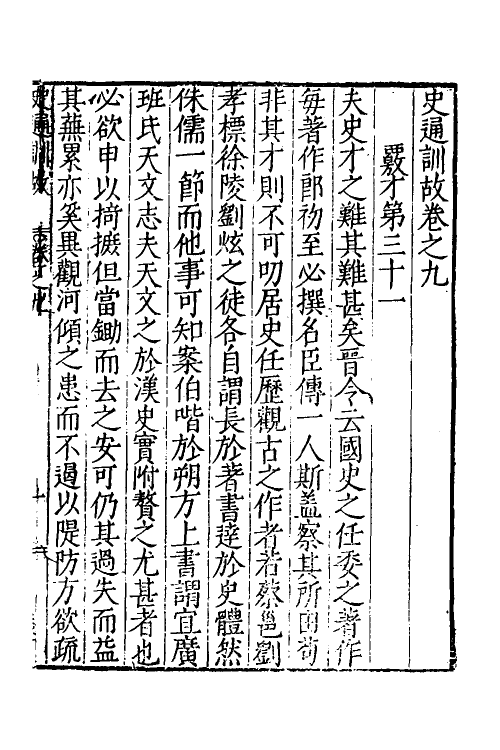 史通訓故卷之九
覈才第三十一
夫史才之難其難甚矣晉令云國史之任委之著作
每著作郎初至必撰名臣傳一人斯蓋察其所由苟
非其才則不可叨居史任歷觀古之作者若蔡邕劉
孝標徐陵劉炫之徒各自謂長於著書達於史體然
侏儒一節而他事可知案伯喈於朔方上書謂宜廣
班氏天文志夫天文之於漢史實附贅之尤甚者也
必欲申以掎摭但當鋤而去之安可仍其過失而益
其蕪累亦奚異觀河傾之患而不遏以隄防方欲疏
史通訓故